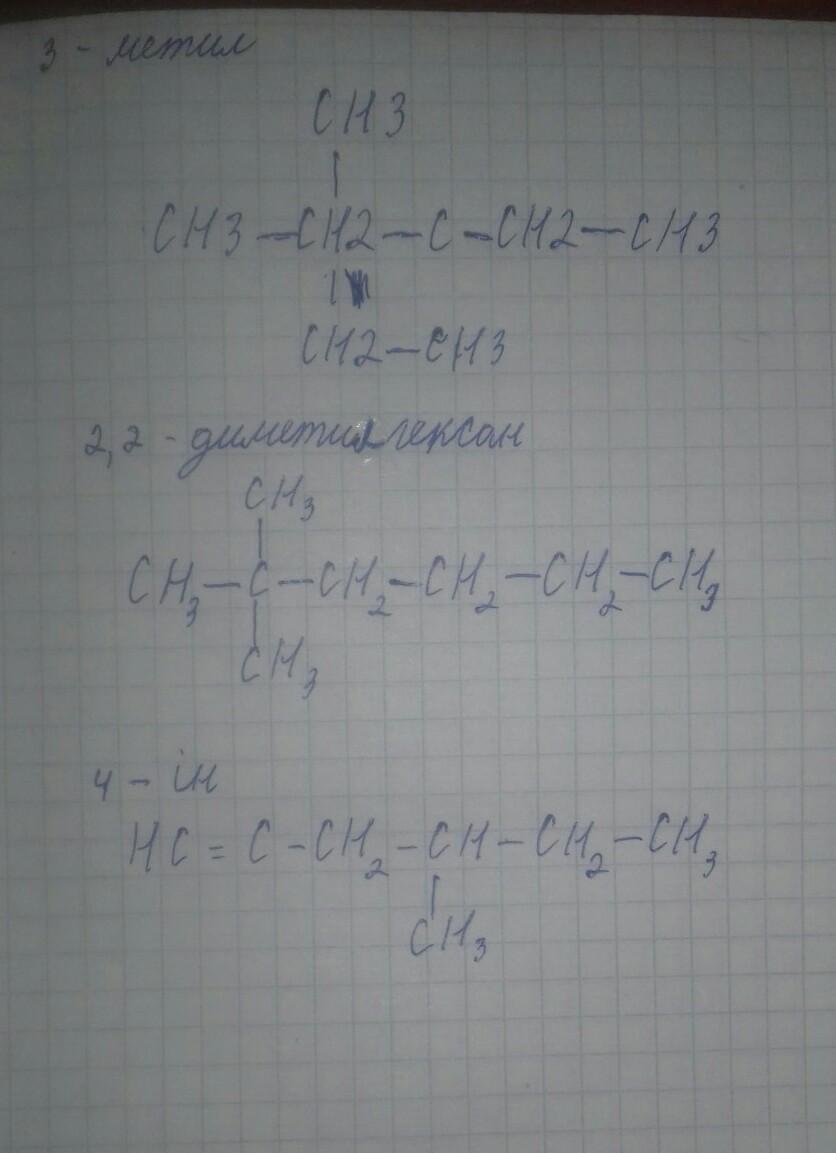 3 - метил
CH3
CH3 - CH2 - C - CH2 - CH3
CH2 - CH3
2,2 - диметилгексан
CH₃
CH₃ - C - CH₂ - CH₂ - CH₂ - CH₃
CH₃
4 - ін
HC = C - CH₂ - CH - CH₂ - CH₃
CH₃